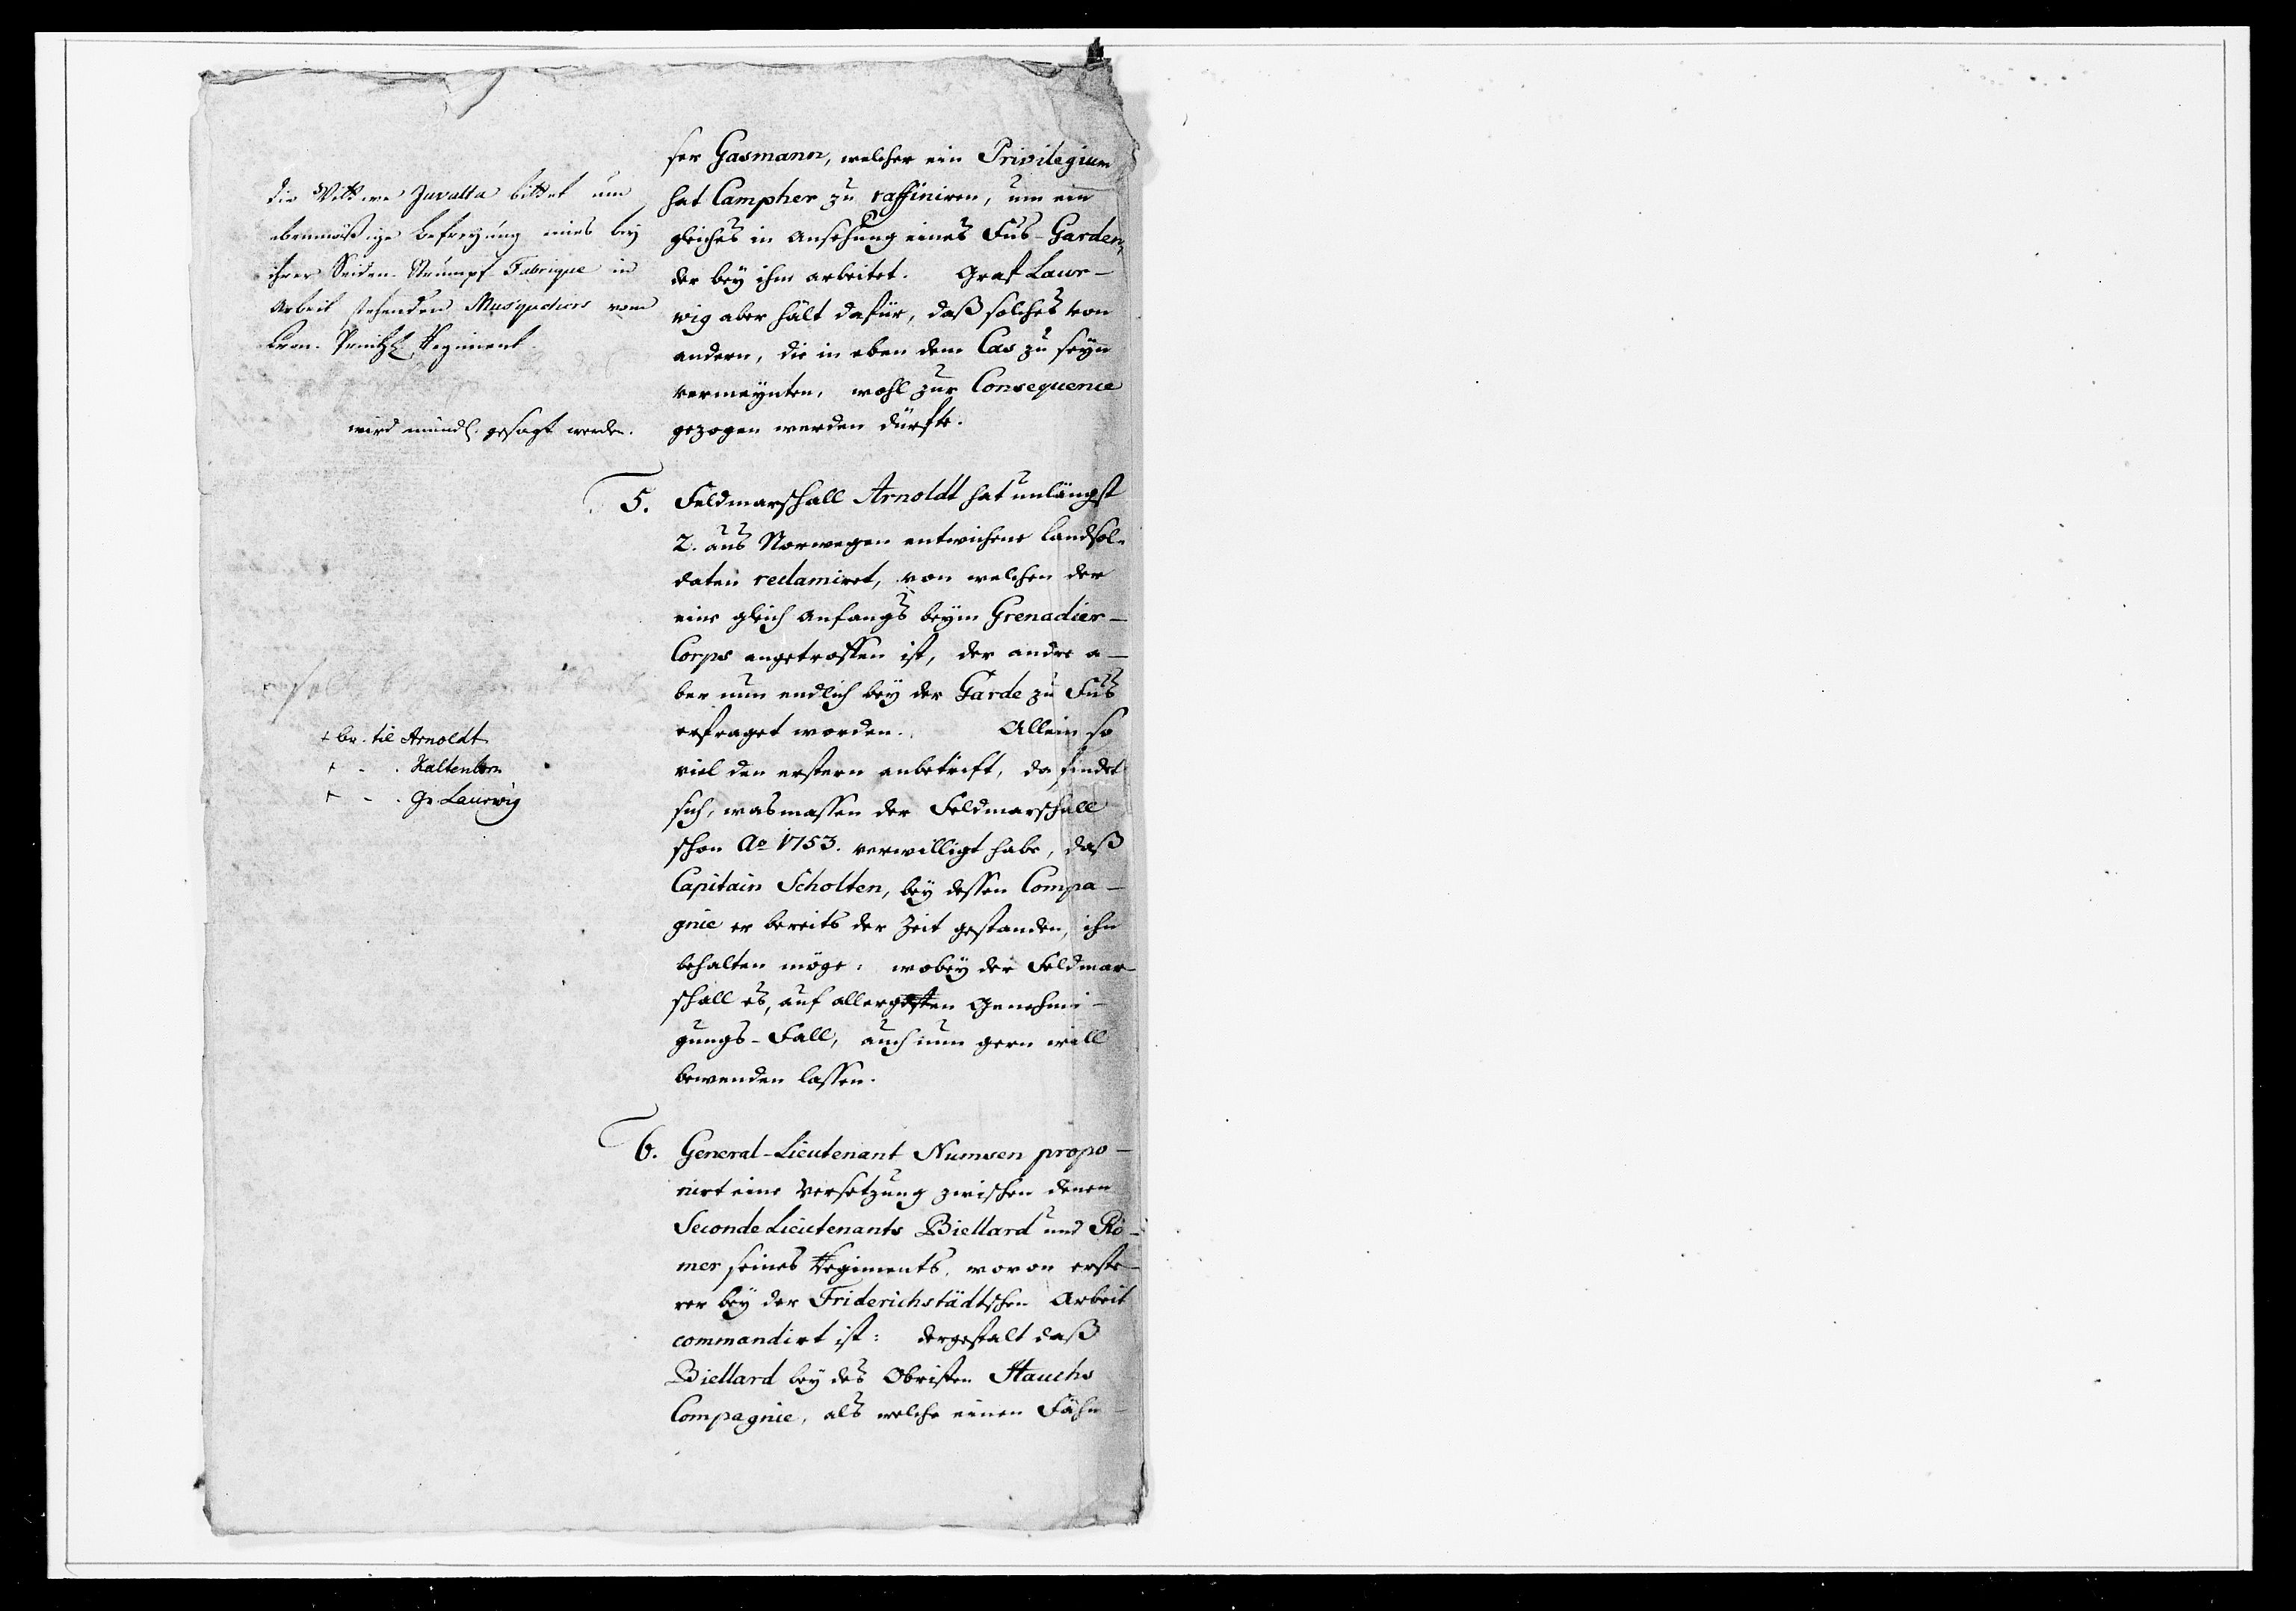 ser Gasmann, welcher ein Privilegium
hat Campher zu raffiniren, um ein
gleiches in Ansehung eines Fus-Garden,
der bey ihm arbeitet. Graf Laur-
wig aber hält dafür, daß solches von
andern, die in eben dem Cas zu seyn
vermeynten, wohl zur Consequence
gezogen werden dürfte.
die Wittwe Juvalta bittet um
ebenmäßige Befreyung eines bey
ihrer Seiden-Strumpf-Fabrique in
Arbeit stehenden Musquetiers vom
Cron-Printzl. Regiment.
wird mündl. gesagt werden.
5. Feldmarschall Arnoldt hat unlängst
2. aus Norwegen entwichene Landsol-
daten reclamiret, von welchen der
eine gleich Anfangs beym Grenadier-
Corps angetroffen ist, der andre a-
ber nun endlich bey der Garde zu Fus
erfraget worden. Allein so
viel den erstern anbetrift, da findet
sich, wasmassen der Feldmarschall
schon Ao 1753. verwilligt habe, daß
Capitain Scholten, bey dessen Compa-
gnie er bereits der Zeit gestanden, ihn
behalten möge: wobey der Feldmar-
schall es, auf allergdsten Genehmi-
gungs-Fall, auch nun gern will
bewenden lassen.
+ br. til Arnoldt
+ - . Kaltenborn
+ - . Gr. Laurwig
6. General-Lieutenant Numsen propo-
nirt eine Versetzung zwischen denen
Seconde Lieutenants Biellard und Rö-
mer seines Regiments, wovon erste-
rer bey der Friderichstädtschen Arbeit
commandirt ist: dergestalt daß
Biellard bey des Obristen Hauchs
Compagnie, als welche einen Fähn-